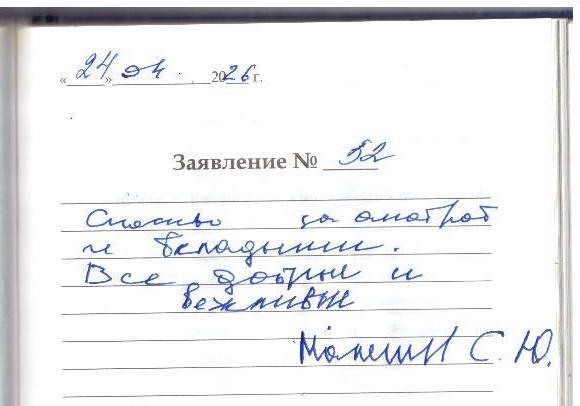 «24» 04. 2026 г.
Заявление № 52
Спасибо за аппарат
и вкладыши.
Все добрые и
вежливые
С. Ю.